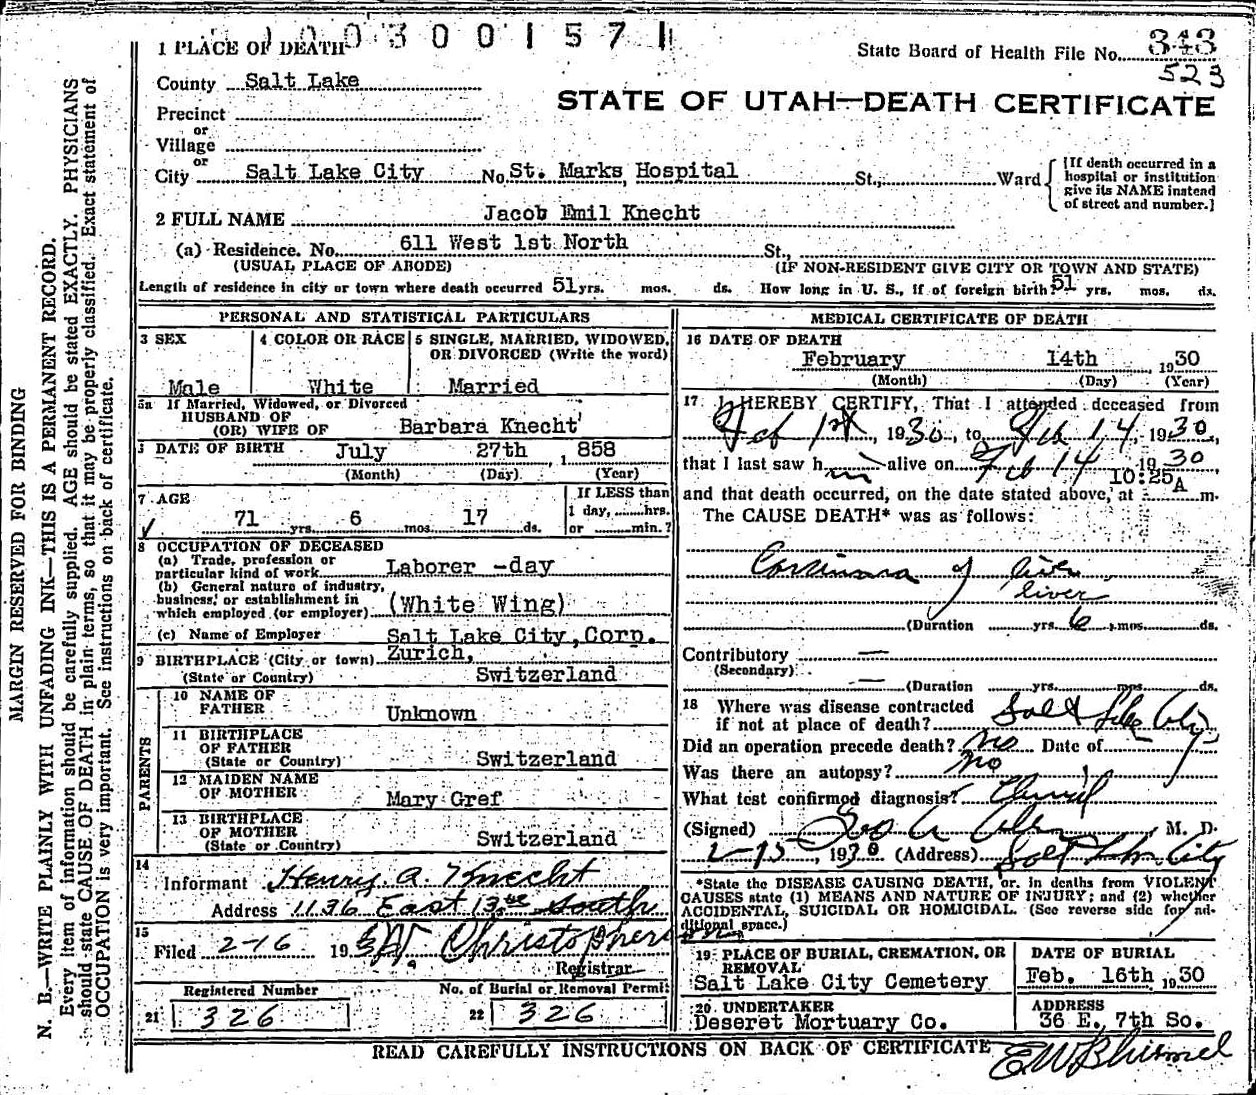 1003001571
1 PLACE OF DEATH
State Board of Health File No. 343
523
County Salt Lake
STATE OF UTAH—DEATH CERTIFICATE
Precinct
or
Village
or
City Salt Lake City No. St. Marks Hospital St., Ward
[If death occurred in a
hospital or institution
give its NAME instead
of street and number.]
2 FULL NAME Jacob Emil Knecht
(a) Residence. No. 611 West 1st North St.,
(USUAL PLACE OF ABODE) (IF NON-RESIDENT GIVE CITY OR TOWN AND STATE)
Length of residence in city or town where death occurred 51 yrs. mos. ds. How long in U. S., if of foreign birth? 51 yrs. mos. ds.
PERSONAL AND STATISTICAL PARTICULARS
3 SEX
Male
4 COLOR OR RACE
White
5 SINGLE, MARRIED, WIDOWED,
OR DIVORCED (Write the word)
Married
5a If Married, Widowed, or Divorced
HUSBAND OF
(OR) WIFE OF Barbara Knecht
DATE OF BIRTH July 27th 1858
(Month) (Day) (Year)
7 AGE
71 yrs. 6 mos. 17 ds.
If LESS than
1 day, hrs.
or min.?
8 OCCUPATION OF DECEASED
(a) Trade, profession or
particular kind of work Laborer -day
(b) General nature of industry,
business, or establishment in
which employed (or employer) (White Wing)
(c) Name of Employer Salt Lake City, Corp.
9 BIRTHPLACE (City or town) Zurich,
(State or Country) Switzerland
PARENTS
10 NAME OF
FATHER Unknown
11 BIRTHPLACE
OF FATHER
(State or Country) Switzerland
12 MAIDEN NAME
OF MOTHER Mary Gref
13 BIRTHPLACE
OF MOTHER
(State or Country) Switzerland
14
Informant Henry A. Knecht
Address 1136 East 13th South
15
Filed 2-16 19 Christophersen
Registrar
Registered Number No. of Burial or Removal Permit
21 326 22 326
MEDICAL CERTIFICATE OF DEATH
16 DATE OF DEATH
February 14th 1930
(Month) (Day) (Year)
17 I HEREBY CERTIFY, That I attended deceased from
Feb 1st, 1930, to Feb 14, 1930,
that I last saw him alive on Feb 14 1930
10:25
and that death occurred, on the date stated above, at A m.
The CAUSE DEATH* was as follows:
Carcinoma of liver
liver
(Duration yrs. 6 mos. ds.
Contributory —
(Secondary)
— (Duration yrs. mos. ds.
18 Where was disease contracted
if not at place of death? Salt Lake City
Did an operation precede death? no Date of
Was there an autopsy? no
What test confirmed diagnosis? Clinical
(Signed) M. D.
2-15, 1930 (Address) Salt Lake City
*State the DISEASE CAUSING DEATH, or, in deaths from VIOLENT
CAUSES state (1) MEANS AND NATURE OF INJURY; and (2) whether
ACCIDENTAL, SUICIDAL OR HOMICIDAL. (See reverse side for ad-
ditional space.)
19 PLACE OF BURIAL, CREMATION, OR
REMOVAL
Salt Lake City Cemetery
DATE OF BURIAL
Feb. 16th 1930
20 UNDERTAKER
Deseret Mortuary Co.
ADDRESS
36 E. 7th So.
READ CAREFULLY INSTRUCTIONS ON BACK OF CERTIFICATE
MARGIN RESERVED FOR BINDING
N. B.—WRITE PLAINLY WITH UNFADING INK—THIS IS A PERMANENT RECORD.
Every item of information should be carefully supplied. AGE should be stated EXACTLY. PHYSICIANS
should state CAUSE OF DEATH in plain terms, so that it may be properly classified. Exact statement of
OCCUPATION is very important. See instructions on back of certificate.